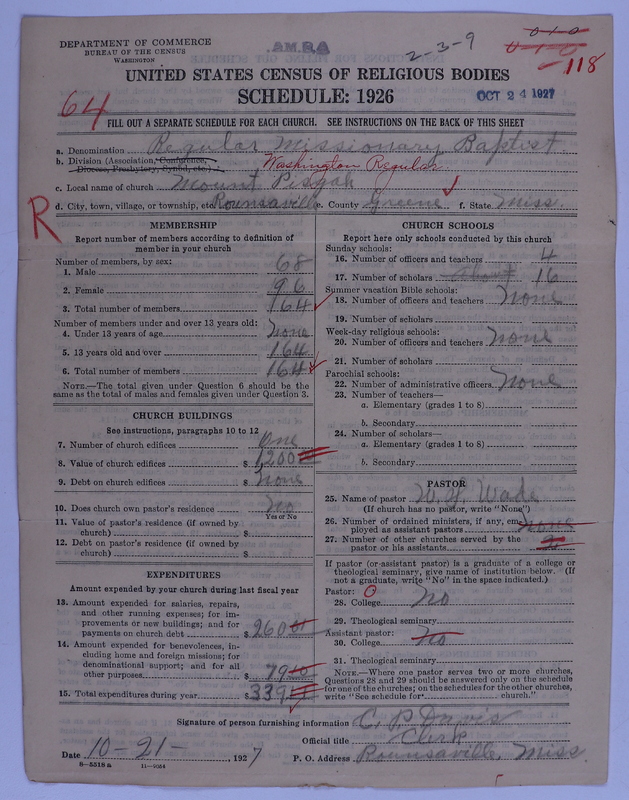 DEPARTMENT OF COMMERCE
BUREAU OF THE CENSUS
WASHINGTON
A.B.M.A.
2-3-9
0 1 0
0 1 0
118
UNITED STATES CENSUS OF RELIGIOUS BODIES
SCHEDULE: 1926
OCT 24 1927
64
FILL OUT A SEPARATE SCHEDULE FOR EACH CHURCH. SEE INSTRUCTIONS ON THE BACK OF THIS SHEET
a. Denomination Regular Missionary Baptist
b. Division (Association, Conference, Diocese, Presbytery, Synod, etc.) Washington Regular
c. Local name of church Mount Pisgah
d. City, town, village, or township, etc. Rounsaville e. County Greene f. State Miss.
R
MEMBERSHIP
Report number of members according to definition of member in your church
Number of members, by sex:
1. Male 68
2. Female 96
3. Total number of members 164
Number of members under and over 13 years old:
4. Under 13 years of age none
5. 13 years old and over 164
6. Total number of members 164
NOTE.—The total given under Question 6 should be the same as the total of males and females given under Question 3.
CHURCH BUILDINGS
See instructions, paragraphs 10 to 12
7. Number of church edifices One
8. Value of church edifices $ 1,200
9. Debt on church edifices $ None
10. Does church own pastor's residence No
Yes or No
11. Value of pastor's residence (if owned by church) $
12. Debt on pastor's residence (if owned by church) $
EXPENDITURES
Amount expended by your church during last fiscal year
13. Amount expended for salaries, repairs, and other running expenses; for improvements or new buildings; and for payments on church debt $ 260
14. Amount expended for benevolences, including home and foreign missions; for denominational support; and for all other purposes $ 79
15. Total expenditures during year $ 339
CHURCH SCHOOLS
Report here only schools conducted by this church
Sunday schools:
16. Number of officers and teachers 4
17. Number of scholars About 16
Summer vacation Bible schools:
18. Number of officers and teachers None
19. Number of scholars
Week-day religious schools:
20. Number of officers and teachers None
21. Number of scholars
Parochial schools:
22. Number of administrative officers None
23. Number of teachers—
a. Elementary (grades 1 to 8)
b. Secondary
24. Number of scholars—
a. Elementary (grades 1 to 8)
b. Secondary
PASTOR
25. Name of pastor W. H. Wade
(If church has no pastor, write "None")
26. Number of ordained ministers, if any, employed as assistant pastors none
27. Number of other churches served by the pastor or his assistants
If pastor (or assistant pastor) is a graduate of a college or theological seminary, give name of institution below. (If not a graduate, write "No" in the space indicated.)
Pastor: O
28. College No
29. Theological seminary
Assistant pastor:
30. College No
31. Theological seminary
NOTE.—Where one pastor serves two or more churches, Questions 28 and 29 should be answered only on the schedule for one of the churches; on the schedules for the other churches, write "See schedule for church."
Signature of person furnishing information C. P. Davis
Official title Clerk
Date 10-21- , 1927 P. O. Address Rounsaville, Miss
8-5518 a 11-9054